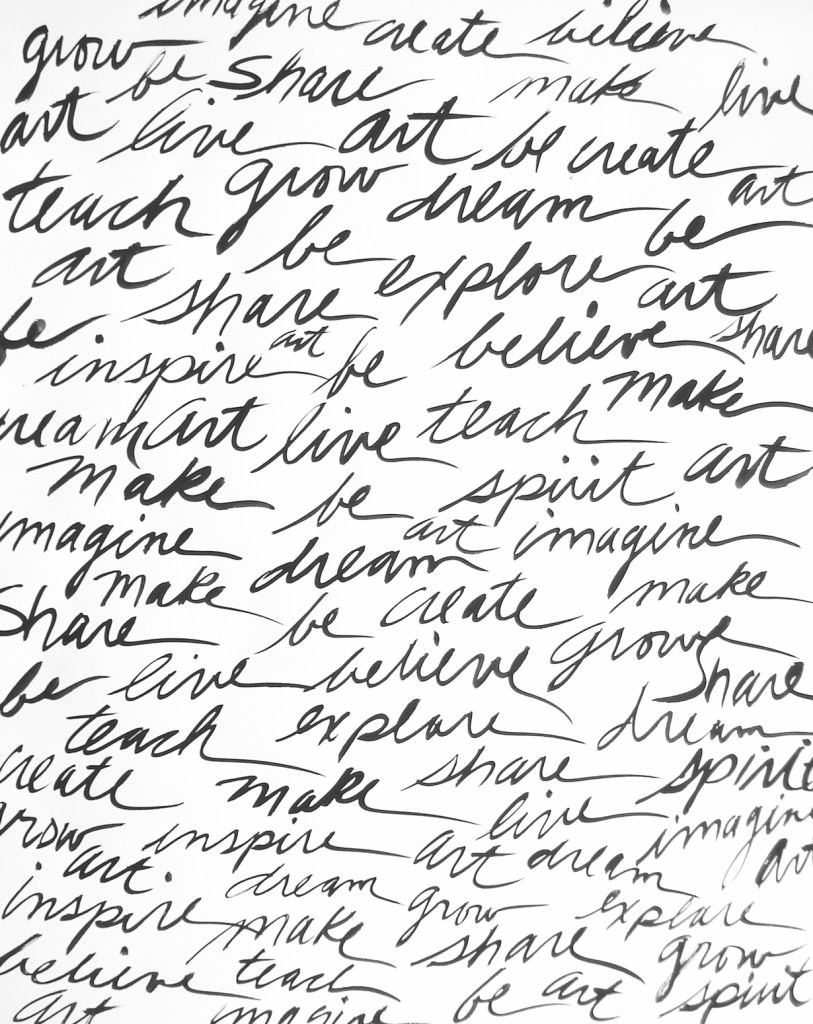 imagine create believe
grow be share make live
art live art be create art
teach grow dream be
art be explore art
be share believe share
inspire art be make
dream art live teach art
make be spirit
imagine art imagine
make dream make
share be create grow
be live believe share
teach explore dream
create make share spirit
grow inspire live imagine
art. art dream art
inspire dream grow explore
make share grow
believe teach be art spirit
art imagine